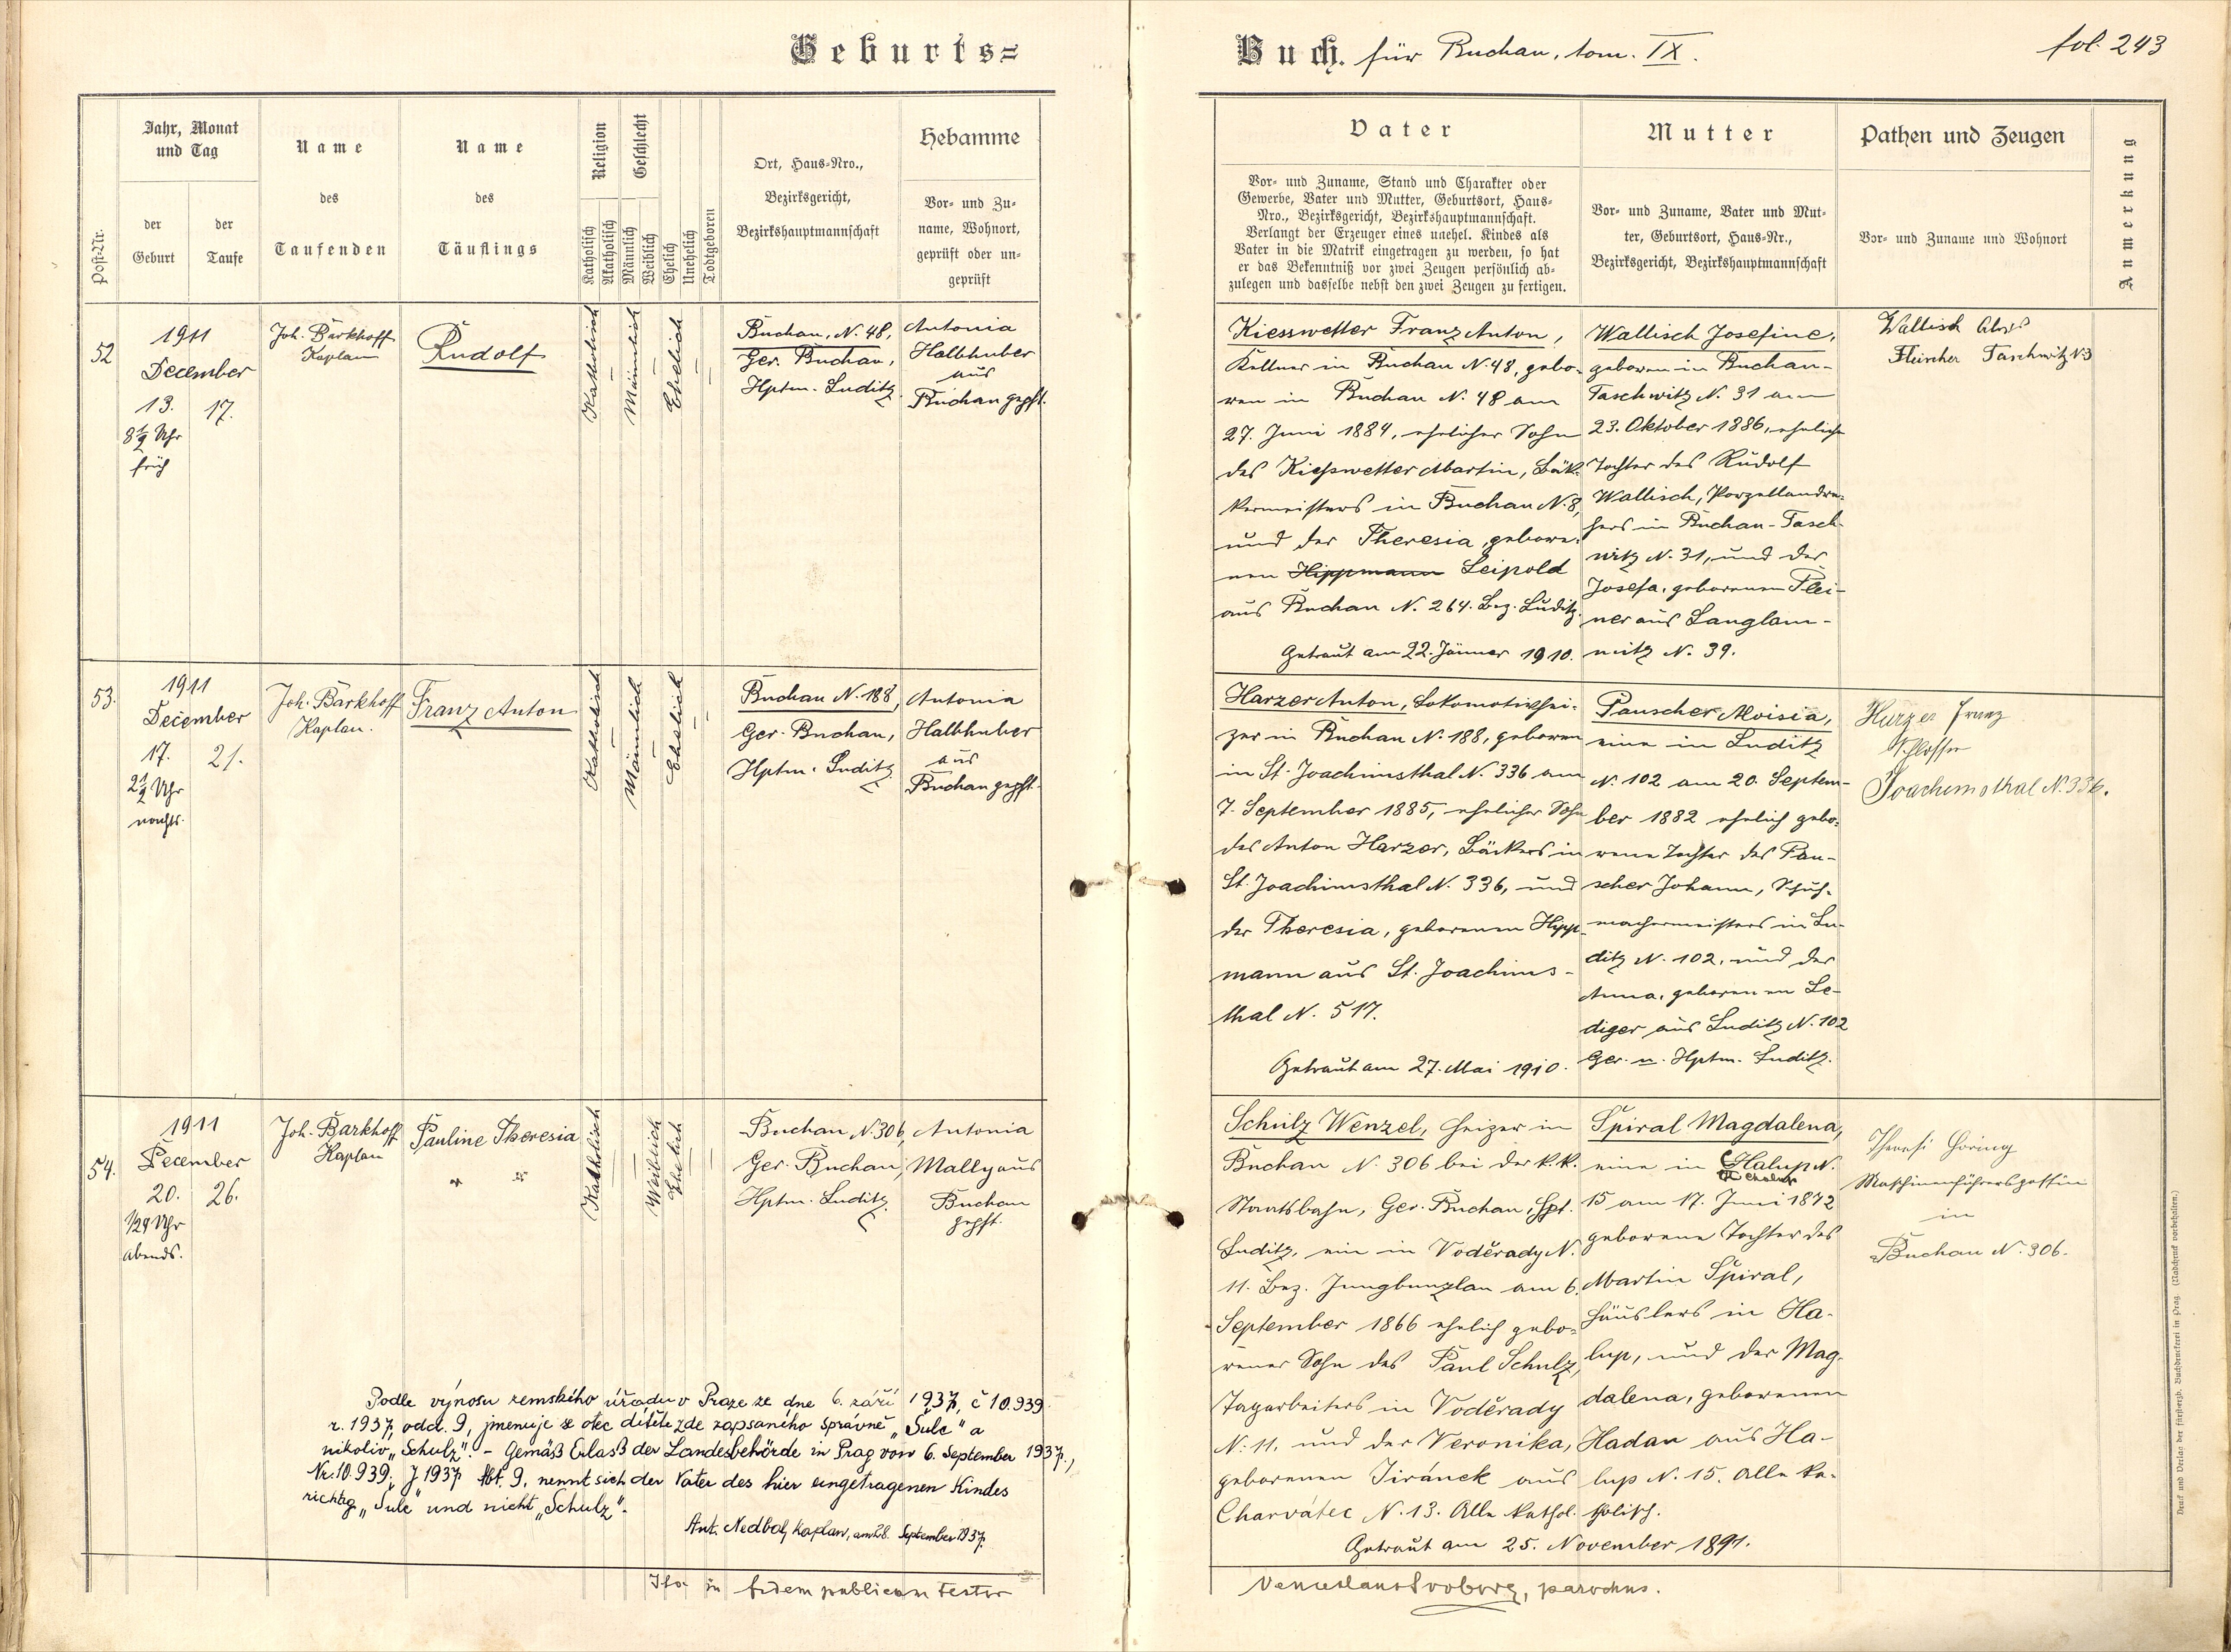 Geburts=
Buch. für Buchau, tom. IX.
fol. 243
Post-Nr.
Jahr, Monat
und Tag
der
Geburt
der
Taufe
Name
des
Taufenden
Name
des
Täuflings
Religion
Katholisch
Akatholisch
Geschlecht
Männlich
Weiblich
Ehelich
Unehelich
Todtgeboren
Ort, Haus-Nro.,
Bezirksgericht,
Bezirkshauptmannschaft
Hebamme
Vor- und Zu-
name, Wohnort,
geprüft oder un-
geprüft
Vater
Vor- und Zuname, Stand und Charakter oder
Gewerbe, Vater und Mutter, Geburtsort, Haus-
Nro., Bezirksgericht, Bezirkshauptmannschaft.
Verlangt der Erzeuger eines unehel. Kindes als
Vater in die Matrik eingetragen zu werden, so hat
er das Bekenntniß vor zwei Zeugen persönlich ab-
zulegen und dasselbe nebst den zwei Zeugen zu fertigen.
Mutter
Vor- und Zuname, Vater und Mut-
ter, Geburtsort, Haus-Nr.,
Bezirksgericht, Bezirkshauptmannschaft
Pathen und Zeugen
Vor- und Zuname und Wohnort
Anmerkung
52
1911
December
13. 17.
8½ Uhr
früh
Joh. Barkhoff
Kaplan
Rudolf
Katholisch
Männlich
Ehelich
Buchau, N. 48,
Ger. Buchau,
Hptm. Luditz
Antonia
Halbhuber
aus
Buchau gepft.
Kiesswetter Franz Anton,
Kellner in Buchau N. 48, gebo-
ren in Buchau N. 48 am
27. Juni 1884, ehelicher Sohn
des Kiesswetter Martin, Bäk-
kermeisters in Buchau N. 8,
und der Theresia, gebore-
nen Hippmann Leipold
aus Buchau N. 264. Bez. Luditz.
Getraut am 22. Jänner 1910.
Wallisch Josefine,
geboren in Buchau-
Taschwitz N. 31 am
23. Oktober 1886, eheliche
Tochter des Rudolf
Wallisch, Porzellandre-
hers in Buchau-Tasch-
witz N. 31, und der
Josefa, geborenen Plei-
ner aus Langlam-
mitz N. 39.
Wallisch Alois
Fleischer Taschwitz N 3
53.
1911
December
17. 21.
2½ Uhr
nachts.
Joh. Barkhoff
Kaplan.
Franz Anton
Katholisch
Männlich
Ehelich
Buchau N. 188,
Ger. Buchau,
Hptm. Luditz
Antonia
Halbhuber
aus
Buchau gepft.
Harzer Anton, Lokomotivhei-
zer in Buchau N. 188, geboren
in St. Joachimsthal N. 336 am
7. September 1885, ehelicher Sohn
des Anton Harzer, Bäckers in
St. Joachimsthal N. 336, und
der Theresia, geborenen Hipp-
mann aus St. Joachims-
thal N. 517.
Getraut am 27. Mai 1910.
Pauscher Aloisia,
eine in Luditz
N. 102 am 20. Septem-
ber 1882 ehelich gebo-
rene Tochter des Pau-
scher Johann, Schuh-
machermeisters in Lu-
ditz N. 102, und der
Anna, geborenen Le-
diger aus Luditz N. 102
Ger. u. Hptm. Luditz.
Harzer Franz
Schlosser
Joachimsthal N. 336.
54.
1911
December
20. 26.
½9 Uhr
abends.
Joh. Barkhoff
Kaplan
Pauline Theresia
Katholisch
Weiblich
Ehelich
Buchau N. 306,
Ger. Buchau,
Hptm. Luditz.
Antonia
Mally aus
Buchau
gepft.
Schulz Wenzel, Heizer in
Buchau N. 306 bei der k.k.
Staatsbahn, Ger. Buchau, Hpt.
Luditz, ein in Voděrady N.
11. Bez. Jungbunzlau am 6.
September 1866 ehelich gebo-
rener Sohn des Paul Schulz,
Tagarbeiters in Voděrady
N. 11. und der Veronika,
geborenen Jiránek aus
Charvátec N. 13. Alle kathol.
Getraut am 25. November 1891.
Spiral Magdalena,
eine in Halup N.
Chalup
15 am 17. Juni 1872
geborene Tochter des
Martin Spiral,
Häuslers in Ha-
lup, und der Mag-
dalena, geborenen
Hadan aus Ha-
lup N. 15. Alle ka-
tholisch.
Theresi Göring
Maschinenführersgattin
in
Buchau N. 306.
Podle výnosu zemského úřadu v Praze ze dne 6. září 1937, č 10.939
r. 1937, odd. 9, jmenuje se otec dítěte zde zapsaného správně „Šulc" a
nikoliv „Schulz". - Gemäß Erlaß der Landesbehörde in Prag vom 6. September 1937.,
Nr. 10.939, J 1937 Abt. 9, nennt sich der Vater des hier eingetragenen Kindes
richtig „Šulc" und nicht „Schulz".
Ant. Nedbal, Kaplan, am 28. September 1937.
Ita in fidem publicam testor
Venceslaus Svoboda, parochus.
Druck und Verlag der fürsterzb. Buchdruckerei in Prag. (Nachdruck vorbehalten.)